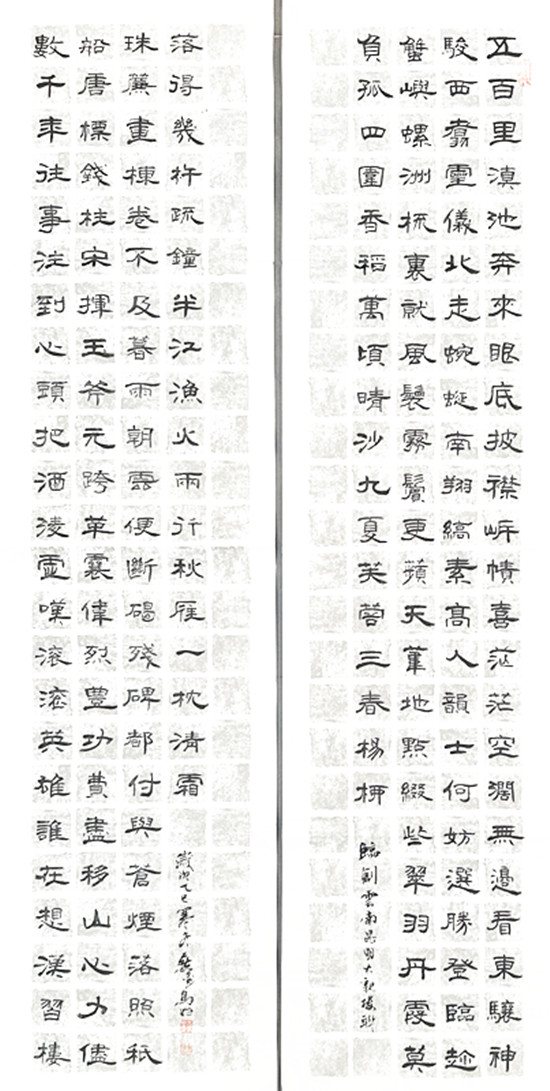 五百里滇池奔來眼底披襟岸幘喜茫茫空濶無邊看東驤神
駿西翥靈儀北走蜿蜒南翔縞素高人韻士何妨選勝登臨趁
蟹嶼螺洲梳裏就風鬟霧鬢更蘋天葦地點綴些翠羽丹霞莫
負孤四圍香稻萬頃晴沙九夏芙蓉三春楊柳
臨 雲南昆明大觀樓聯
數千年往事注到心頭把酒淩虛嘆滾滾英雄誰在想漢習樓
船唐標鐵柱宋揮玉斧元跨革囊偉烈豊功費盡移山心力儘
珠簾畫棟卷不及暮雨朝雲便斷碣殘碑都付與蒼煙落照祇
落得幾杵疏鐘半江漁火兩行秋雁一枕清霜
歲次乙巳寒月